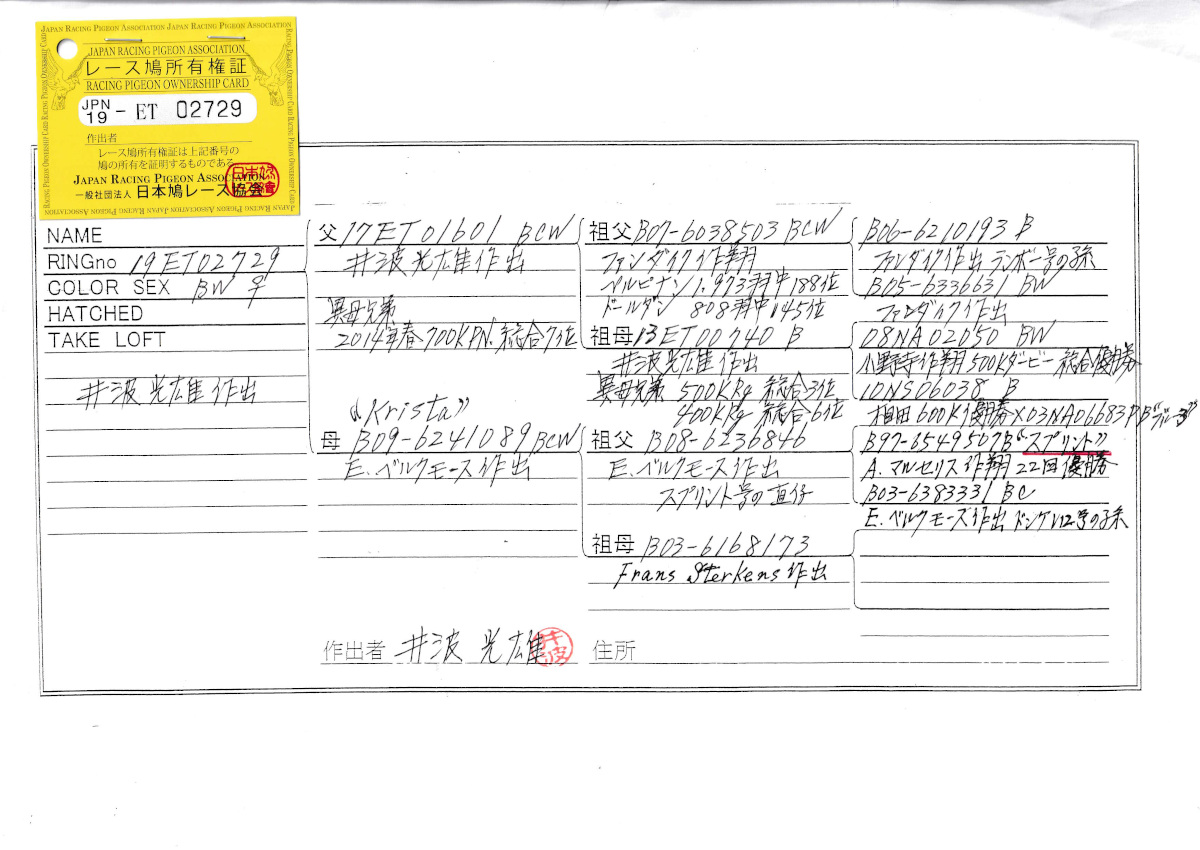 JAPAN RACING PIGEON ASSOCIATION JAPAN RACING PIGEON ASSOCIATION
JAPAN RACING PIGEON ASSOCIATION
レース鳩所有権証
RACING PIGEON OWNERSHIP CARD
JPN
19 - ET 02729
作出者
レース鳩所有権証は上記番号の
鳩の所有を証明するものである。
JAPAN RACING PIGEON ASSOCIATION
一般社団法人 日本鳩レース協会
NAME
RINGno 19ET02729
COLOR SEX BW ♀
HATCHED
TAKE LOFT
井波光雄作出
父 17ET01601 BCW
井波光雄作出
異母兄弟
2014年春700KPN. 総合7位
"Krista"
母 B09-6241089 BCW
E.ベルクモース作出
祖父 B07-6038503 BCW
ファンダイク作翔
ベルピナン1,973羽中188位
ドールダン 808羽中145位
祖母 13ET00740 B
井波光雄作出
異母兄弟 500KRg 総合3位
400KRg 総合6位
祖父 B08-6236846
E.ベルクモース作出
スプリント号の直仔
祖母 B03-6168173
Frans Sterkens 作出
B06-6210193 B
ファンダイク作出 ランボー号の孫
B05-6336631 BW
ファンダイク作出
08NA02050 BW
小野寺作翔500Kダービー総合優勝
10NS06038 B
相田600K優勝×03NA06683
B97-6549507B "スプリント"
A.マルセリス作翔22回優勝
B03-6383331 BC
E.ベルクモース作出 ドンケレ12号の孫
作出者 井波 光雄 井波
住所